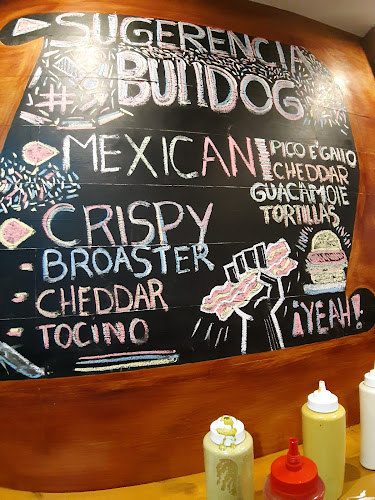 SUGERENCIA
BULLDOG
MEXICAN
PICO E' GALLO
CHEDDAR
GUACAMOLE
TORTILLAS
CRISPY
BROASTER
CHEDDAR
TOCINO
¡YEAH!